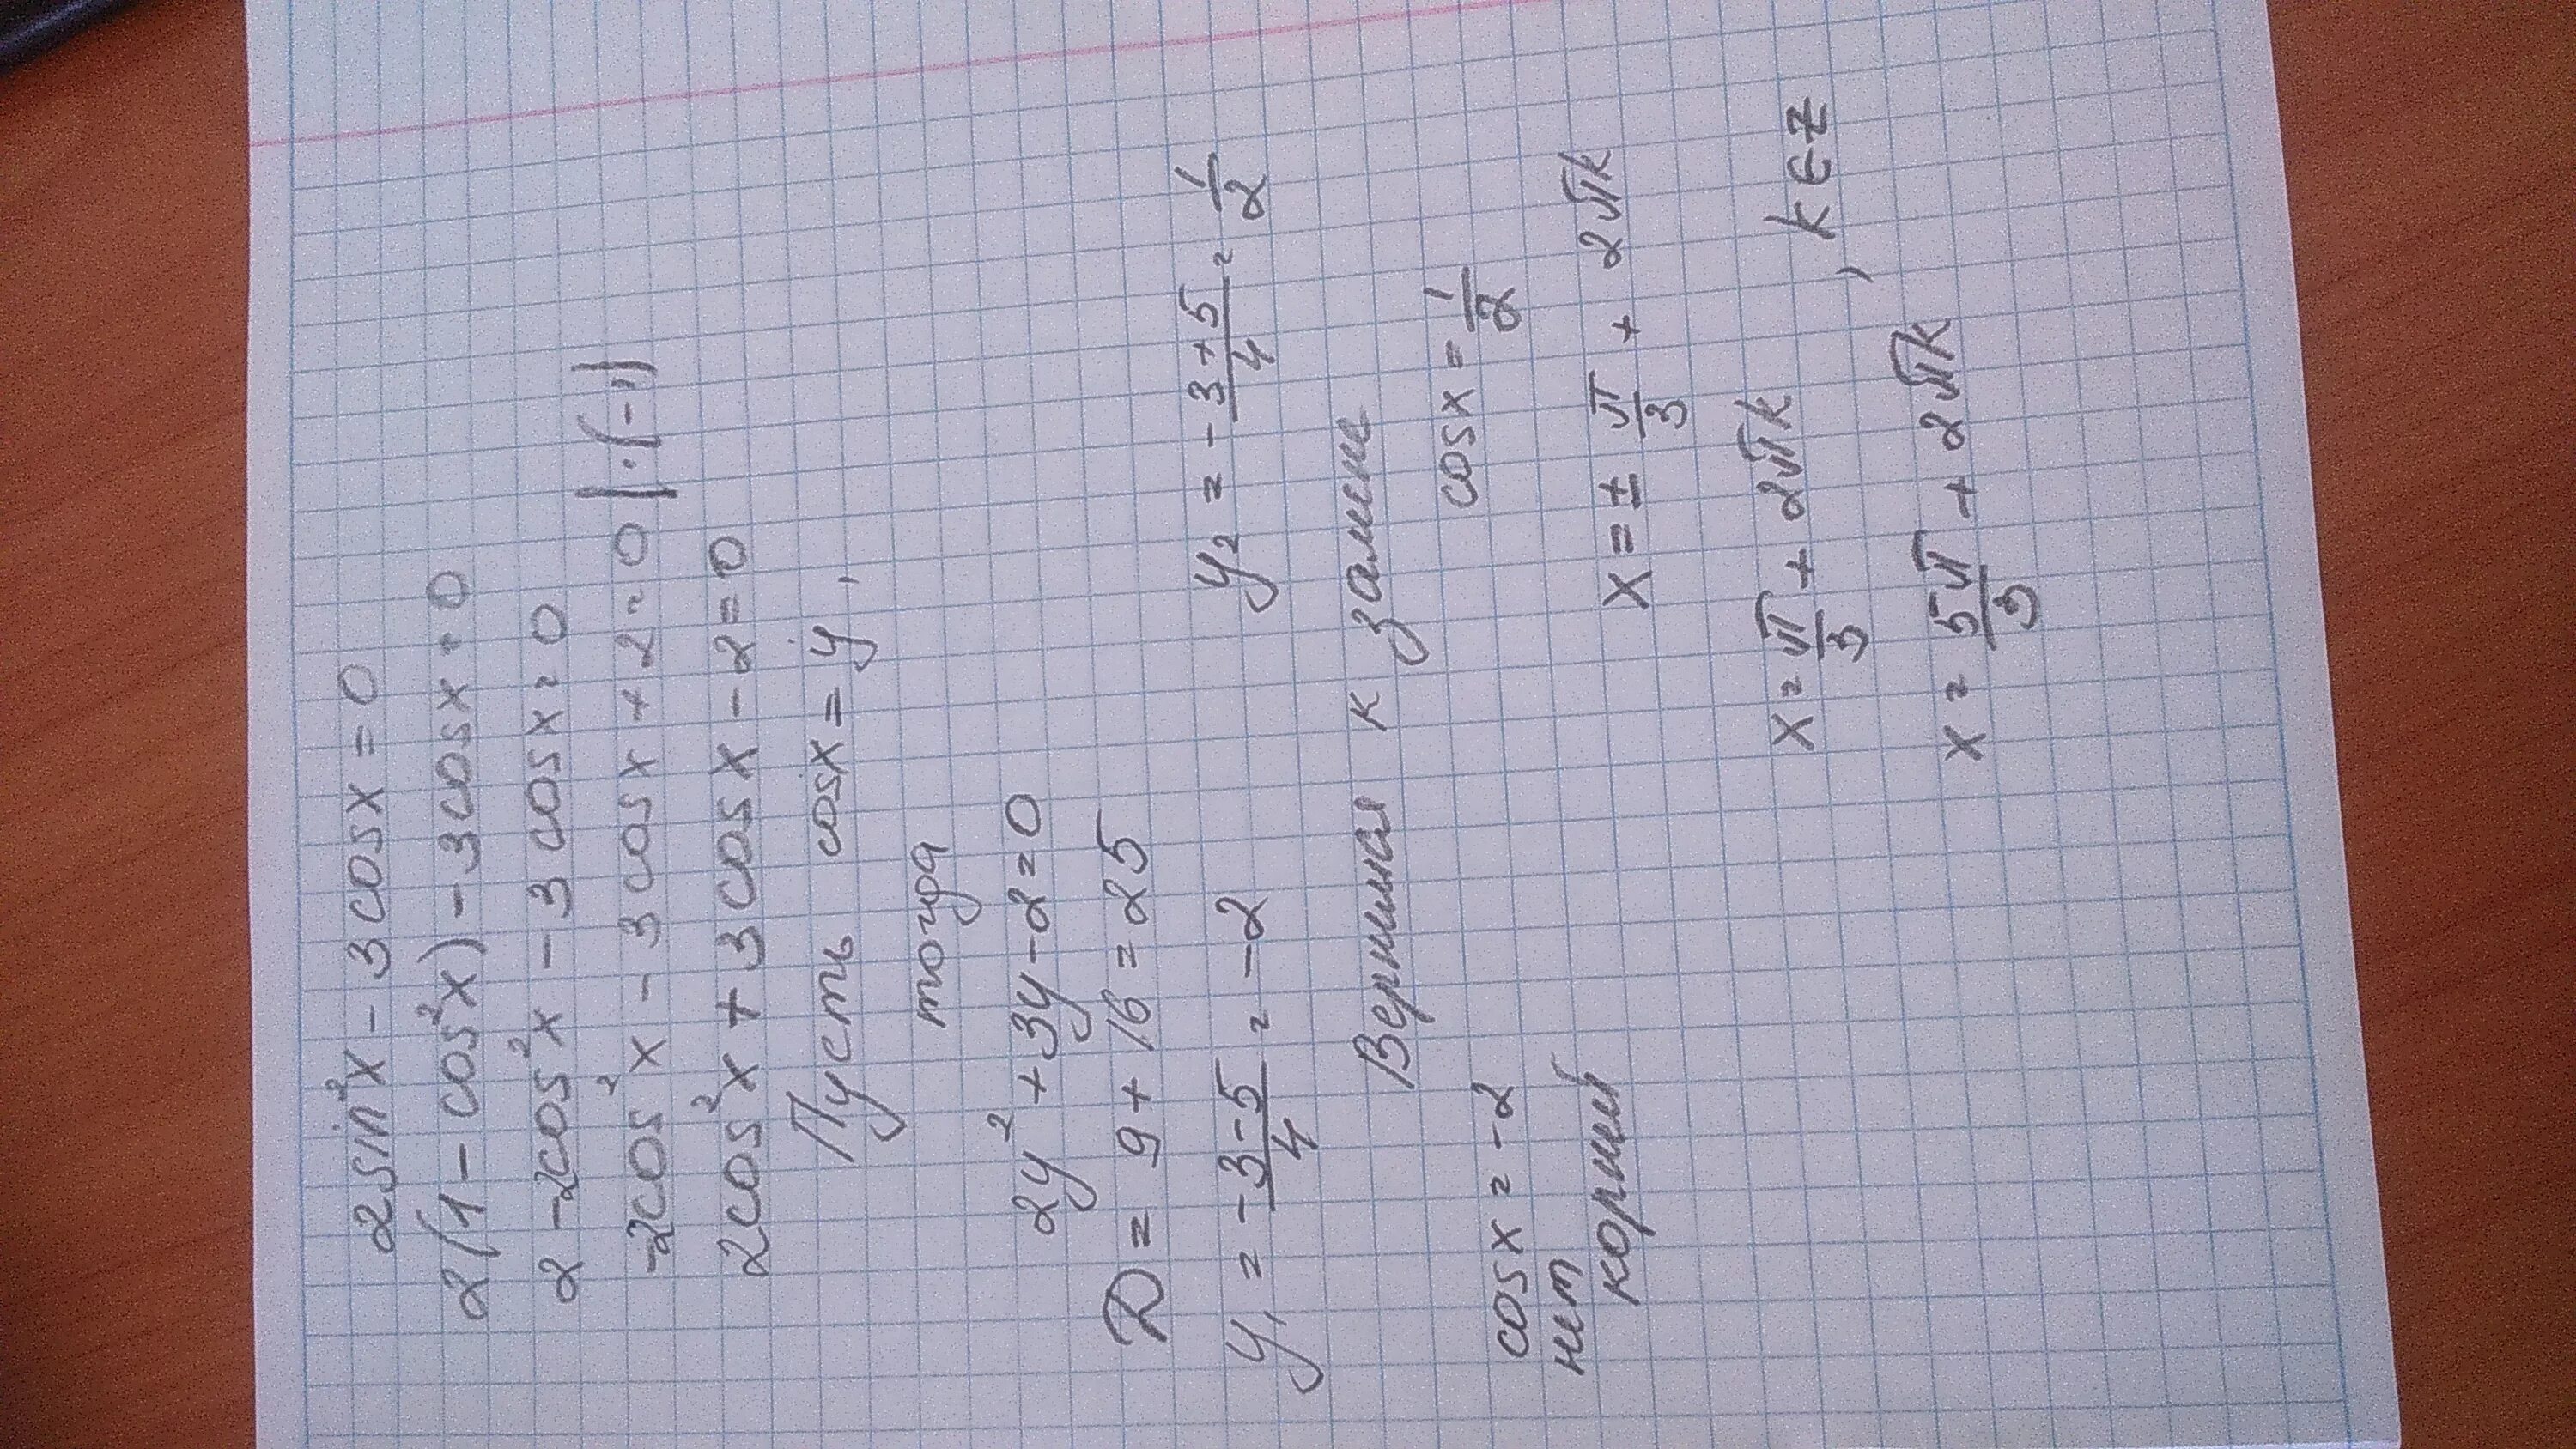 2sin²x - 3cosx = 0
2(1 - cos²x) - 3cosx = 0
2 - 2cos²x - 3cosx = 0
-2cos²x - 3cosx + 2 = 0 |·(-1)
2cos²x + 3cosx - 2 = 0
Пусть cosx = y,
тогда
2y² + 3y - 2 = 0
D = 9 + 16 = 25
y₁ = (-3-5)/4 = -2 y₂ = (-3+5)/4 = 1/2
Вернимся к замене
cosx = -2 cosx = 1/2
нет
корней x = ± π/3 + 2πk
x = π/3 + 2πk
, k ∈ Z
x = 5π/3 + 2πk